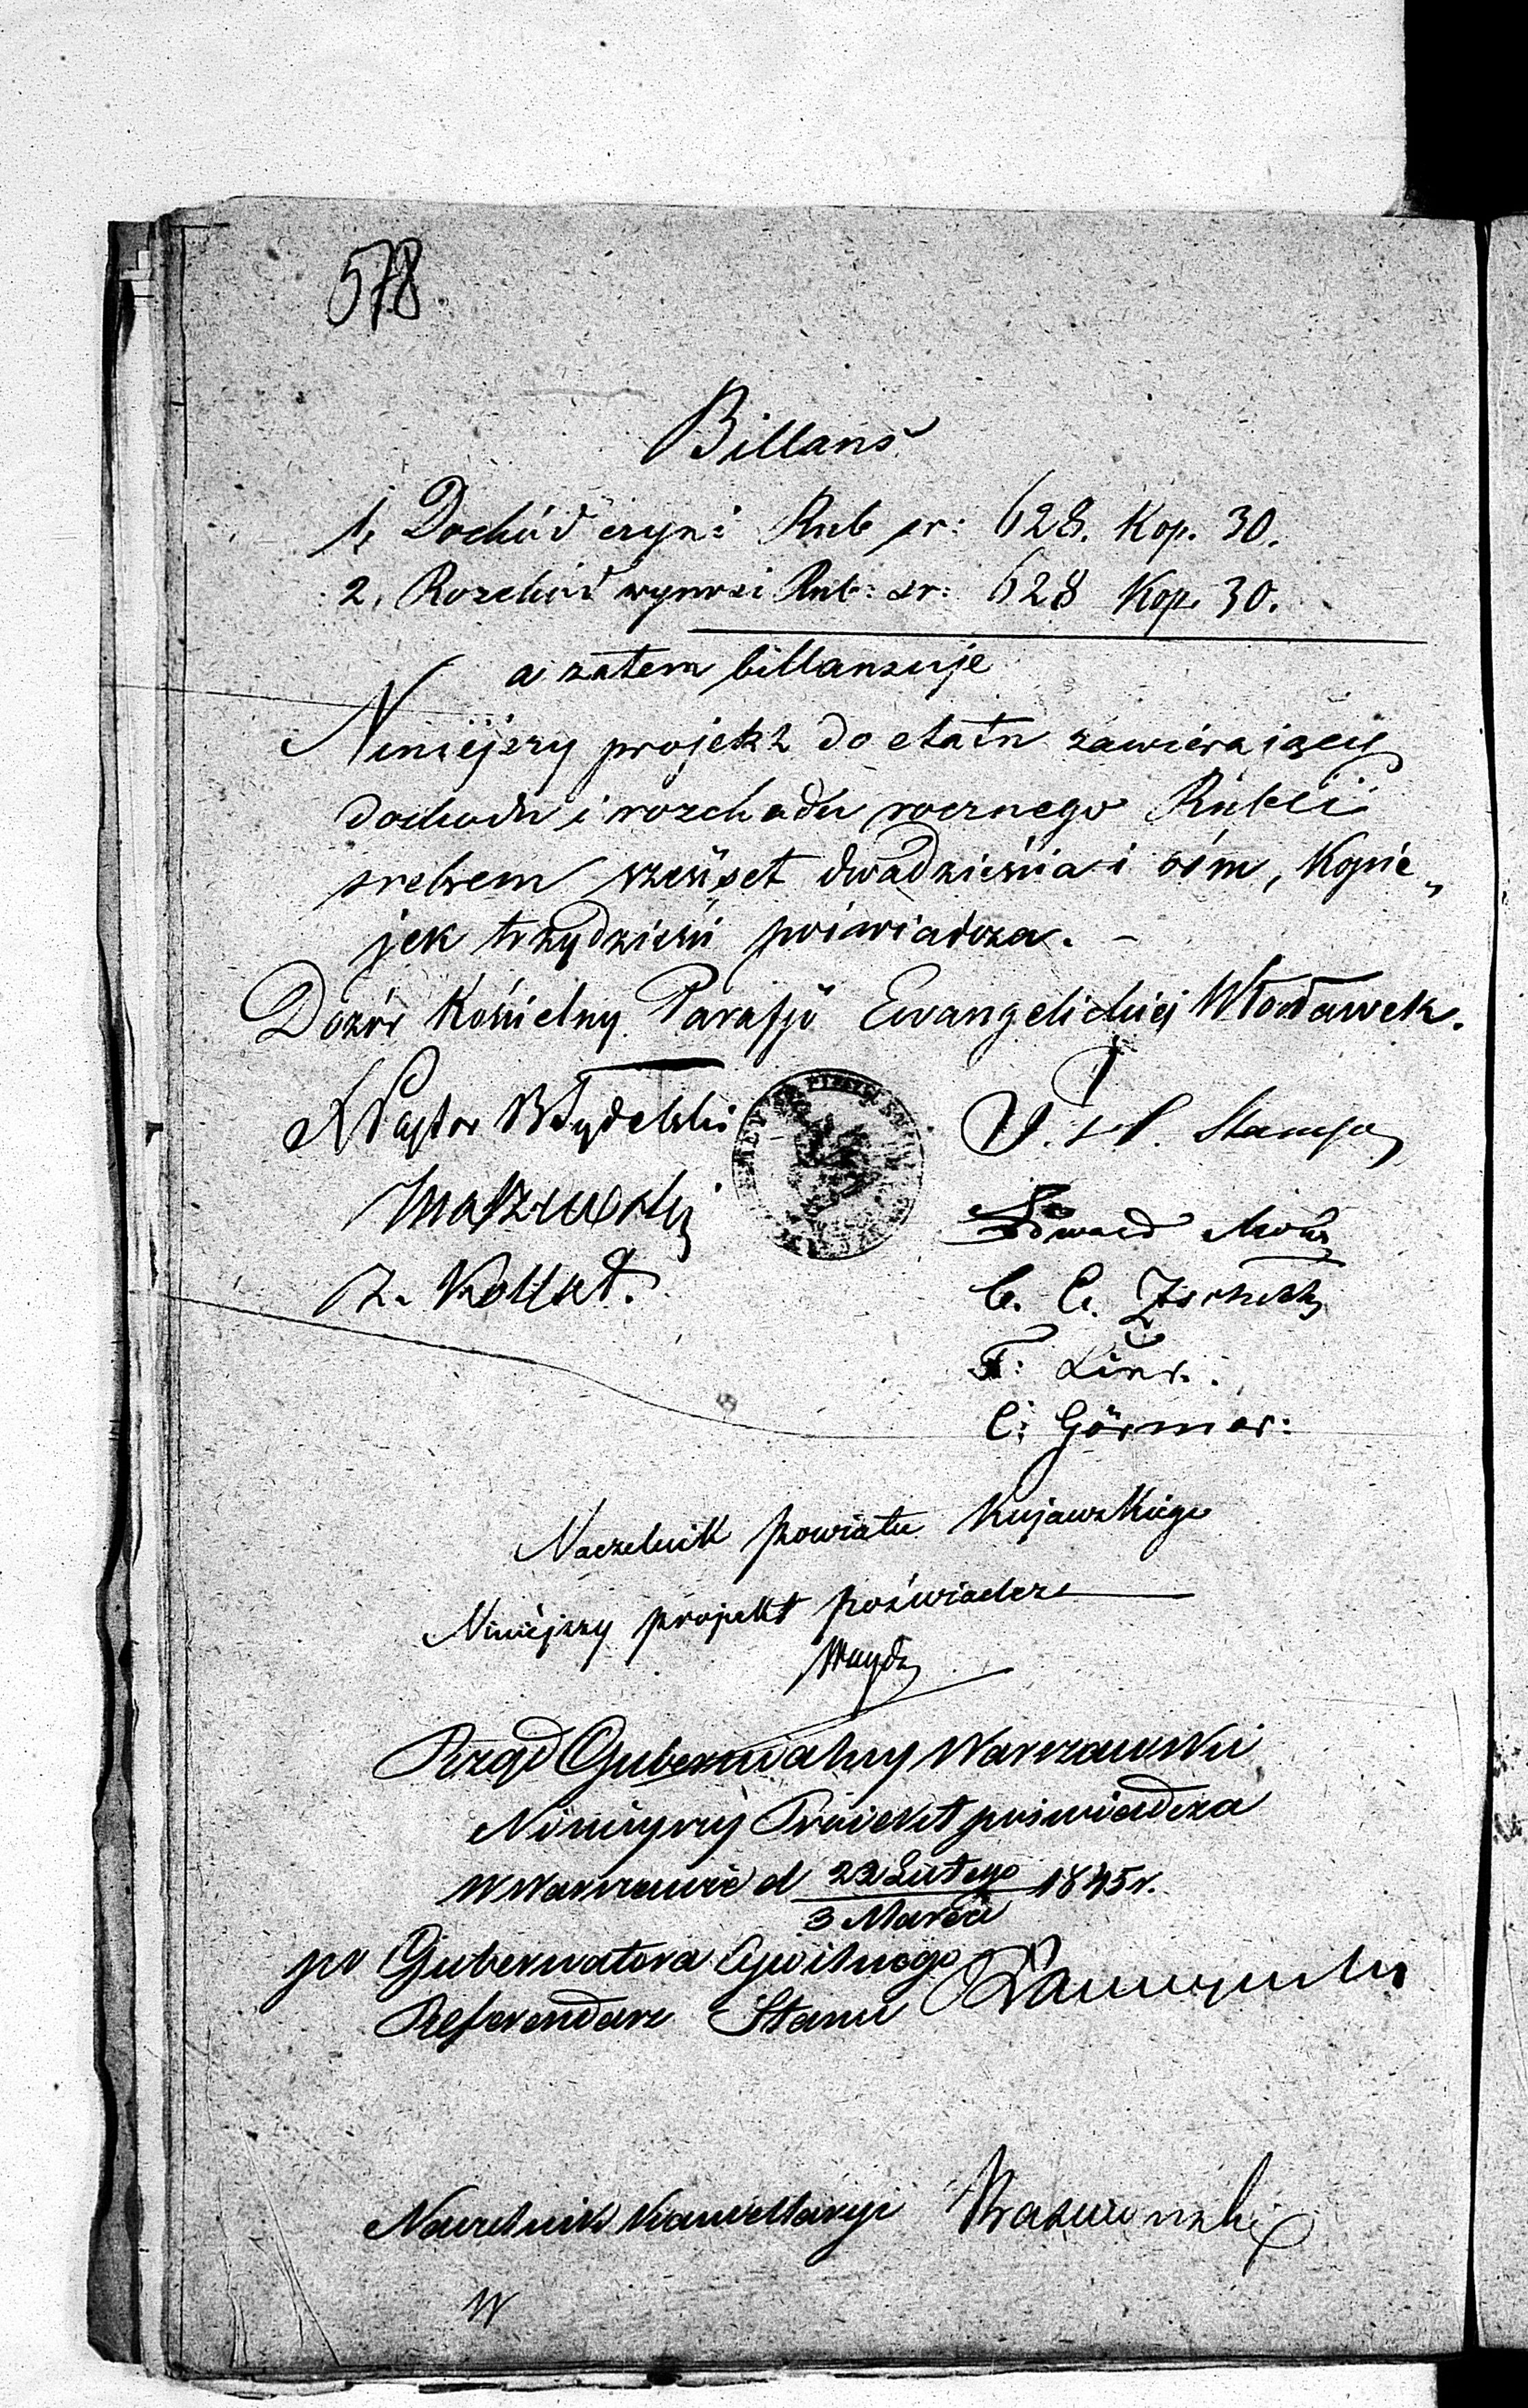 578
Billans
1, Dochód czyni Rub sr: 628. Kop. 30.
2, Rozchód wynosi Rub: sr: 628 Kop. 30.
a zatem billansuje
Niniejszy projekt do etatu zawierający
dochodu i rozchodu rocznego Rubli
srebrem sześćset dwadzieścia i ośm, Kopie„
jek trzydzieści poświadcza. –
Dozór Kościelny Parafji Ewangelickiej Włocławek.
Pastor
Edward
F:
C:
Naczelnik powiatu Kujawskiego
Niniejszy projekt poświadcza
Rząd Gubernialny Warszawski
Niniejszy Projekt poświadcza
W Warszawie d 23 Lutego 1845 r.
3 Marca
po Gubernatora Cywilnego
Referendarz Stanu
Naczelnik Kancellaryi